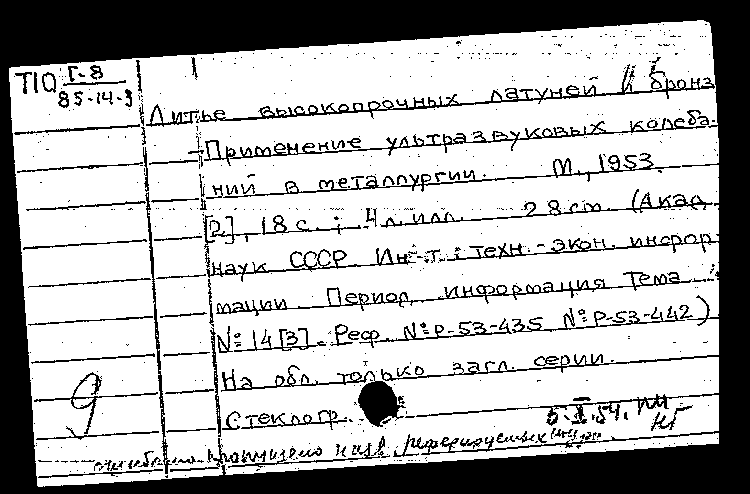 Т10 Г-8
85-14-3
Литье высокопрочных латуней и бронз
- Применение ультразвуковых колеба-
ний в металлургии. М., 1953.
[2], 18 с.; 4 л. илл. 28 cm. (Акад.
наук СССР. Ин-т техн.-экон. информ
мации. Период. информация Тема
№ 14 [3]. Реф. № Р-53-435, № Р-53-442)
На обл. только загл. серии.
Стеклогр.
54. пи
нг
9
ошибочно пропущено назв. реферируемых